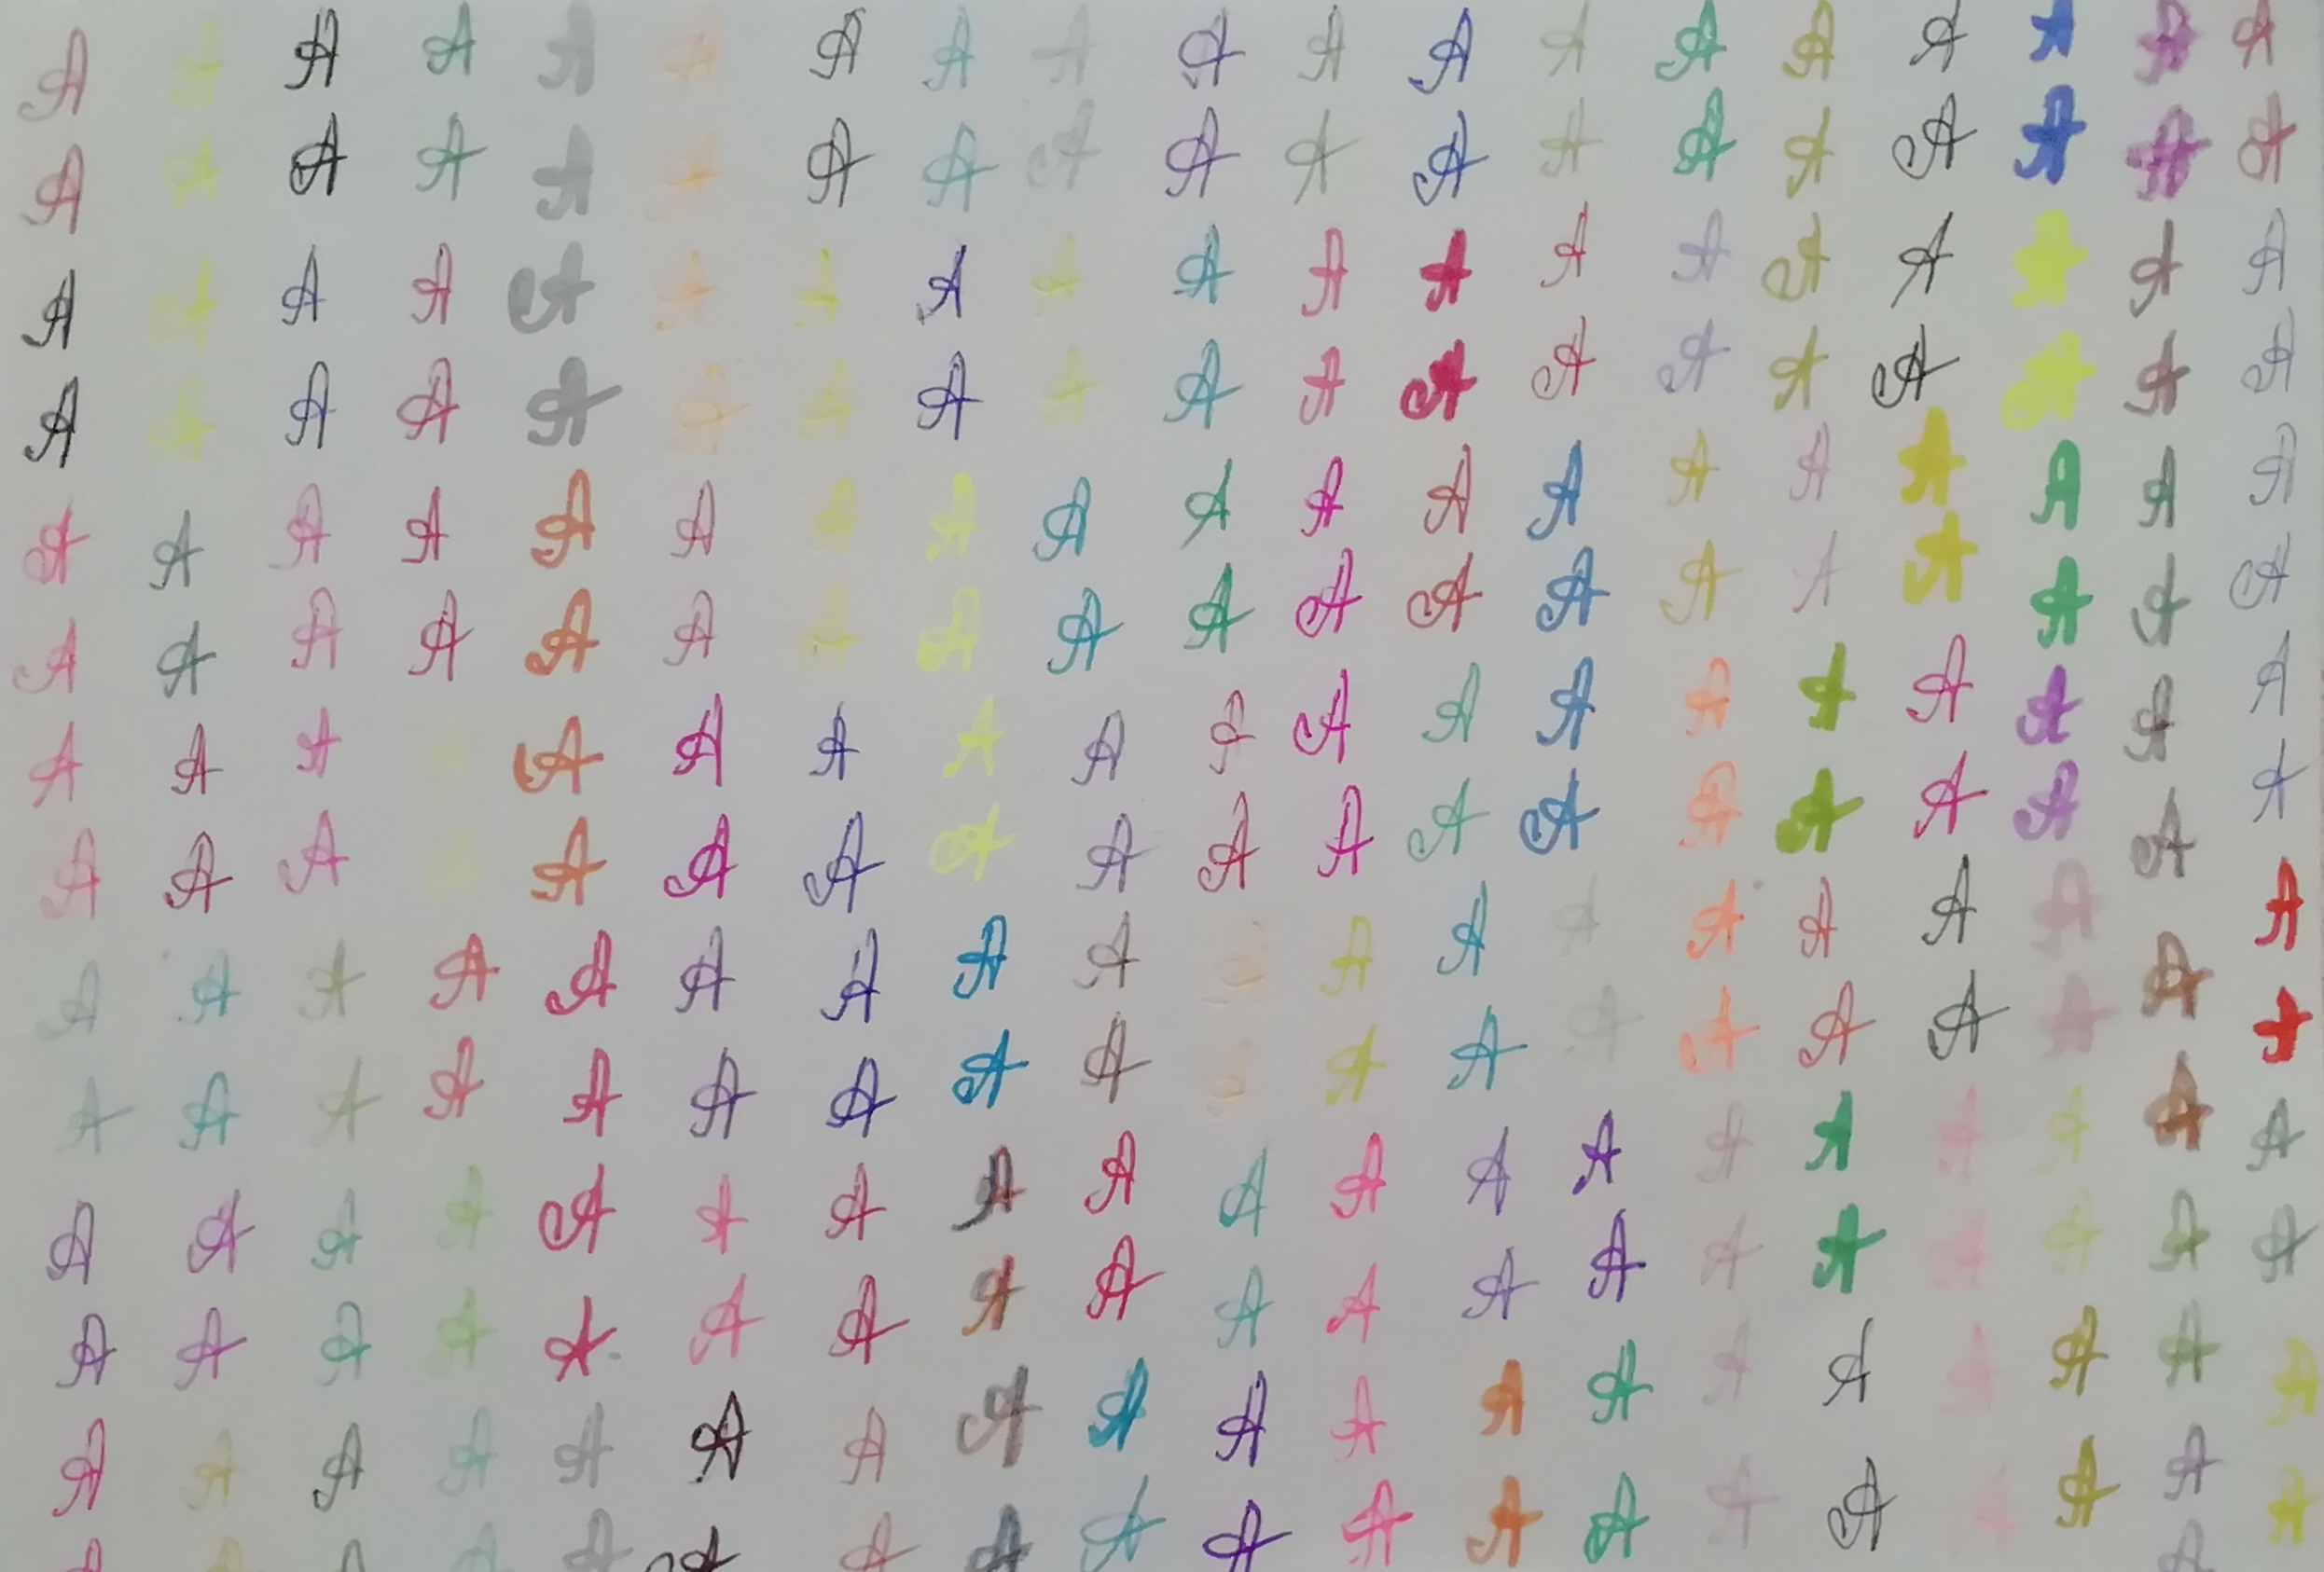 A A A A A A A A A A A A A A A A A A A
A A A A A A A A A A A A A A A A A A A
A A A A A A A A A A A A A A A A A A A
A A A A A A A A A A A A A A A A A A A
A A A A A A A A A A A A A A A A A A A
A A A A A A A A A A A A A A A A A A A
A A A A A A A A A A A A A A A A A A A
A A A A A A A A A A A A A A A A A A A
A A A A A A A A A A A A A A A A A A A
A A A A A A A A A A A A A A A A A A A
A A A A A A A A A A A A A A A A A A A
A A A A A A A A A A A A A A A A A A A
A A A A A A A A A A A A A A A A A A A
A A A A A A A A A A A A A A A A A A A